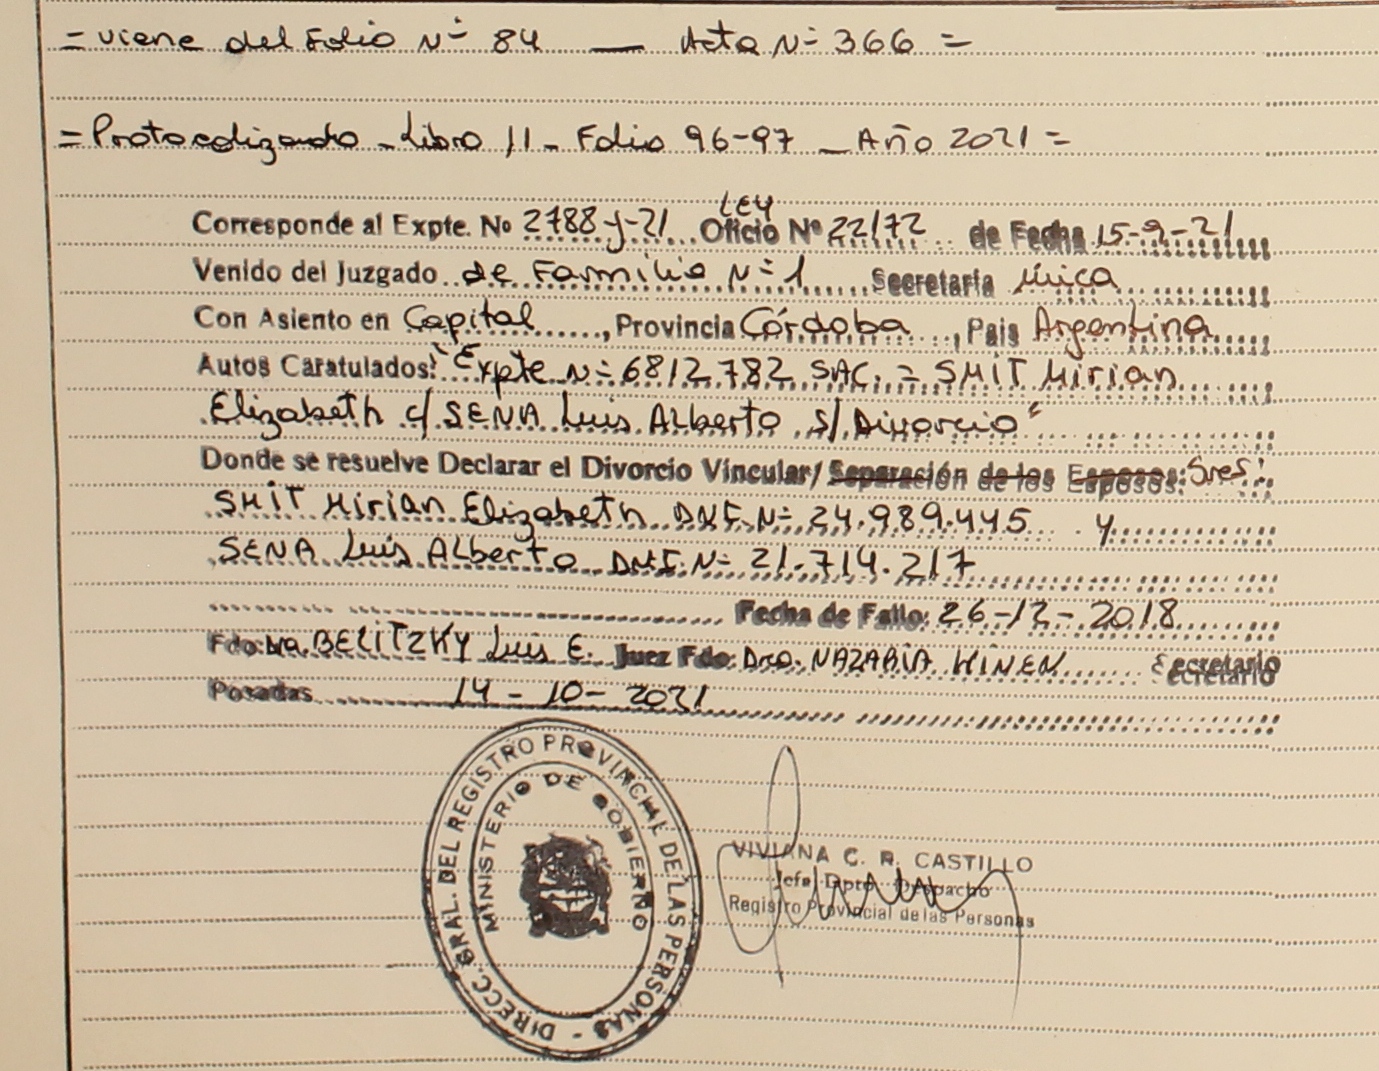 = viene del Folio Nº 84 — Acta Nº 366 =
= Protocolizando - Libro 11 - Folio 96-97 - Año 2021 =
LEY
Corresponde al Expte. No 2788-y-21 Oficio Nº 22172 de Fecha 15-9-21
Venido del Juzgado de Familia Nº 1 Secretaria única
Con Asiento en Capital, Provincia Córdoba, Pais Argentina
Autos Caratulados: "Expte Nº 6812782 SAC. = SMIT Mirian
Elizabeth c/ SENA Luis Alberto s/ Divorcio"
Donde se resuelve Declarar el Divorcio Vincular/ Separación de los Esposos: Sres:
SMIT Mirian Elizabeth DNI. Nº 24.989.445 y
SENA Luis Alberto DNI. Nº 21.714.217
Fecha de Fallo: 26-12-2018
Fdo: BELITZKY Luis E. Juez Fdo: Dra. NAZARIA Secretario
Posadas 14-10-2021
DIRECC. GRAL. DEL REGISTRO PROVINCIAL DE LAS PERSONAS -
MINISTERIO DE GOBIERNO
VIVIANA C. R. CASTILLO
Jefa Dpto Despacho
Registro Provincial de las Personas